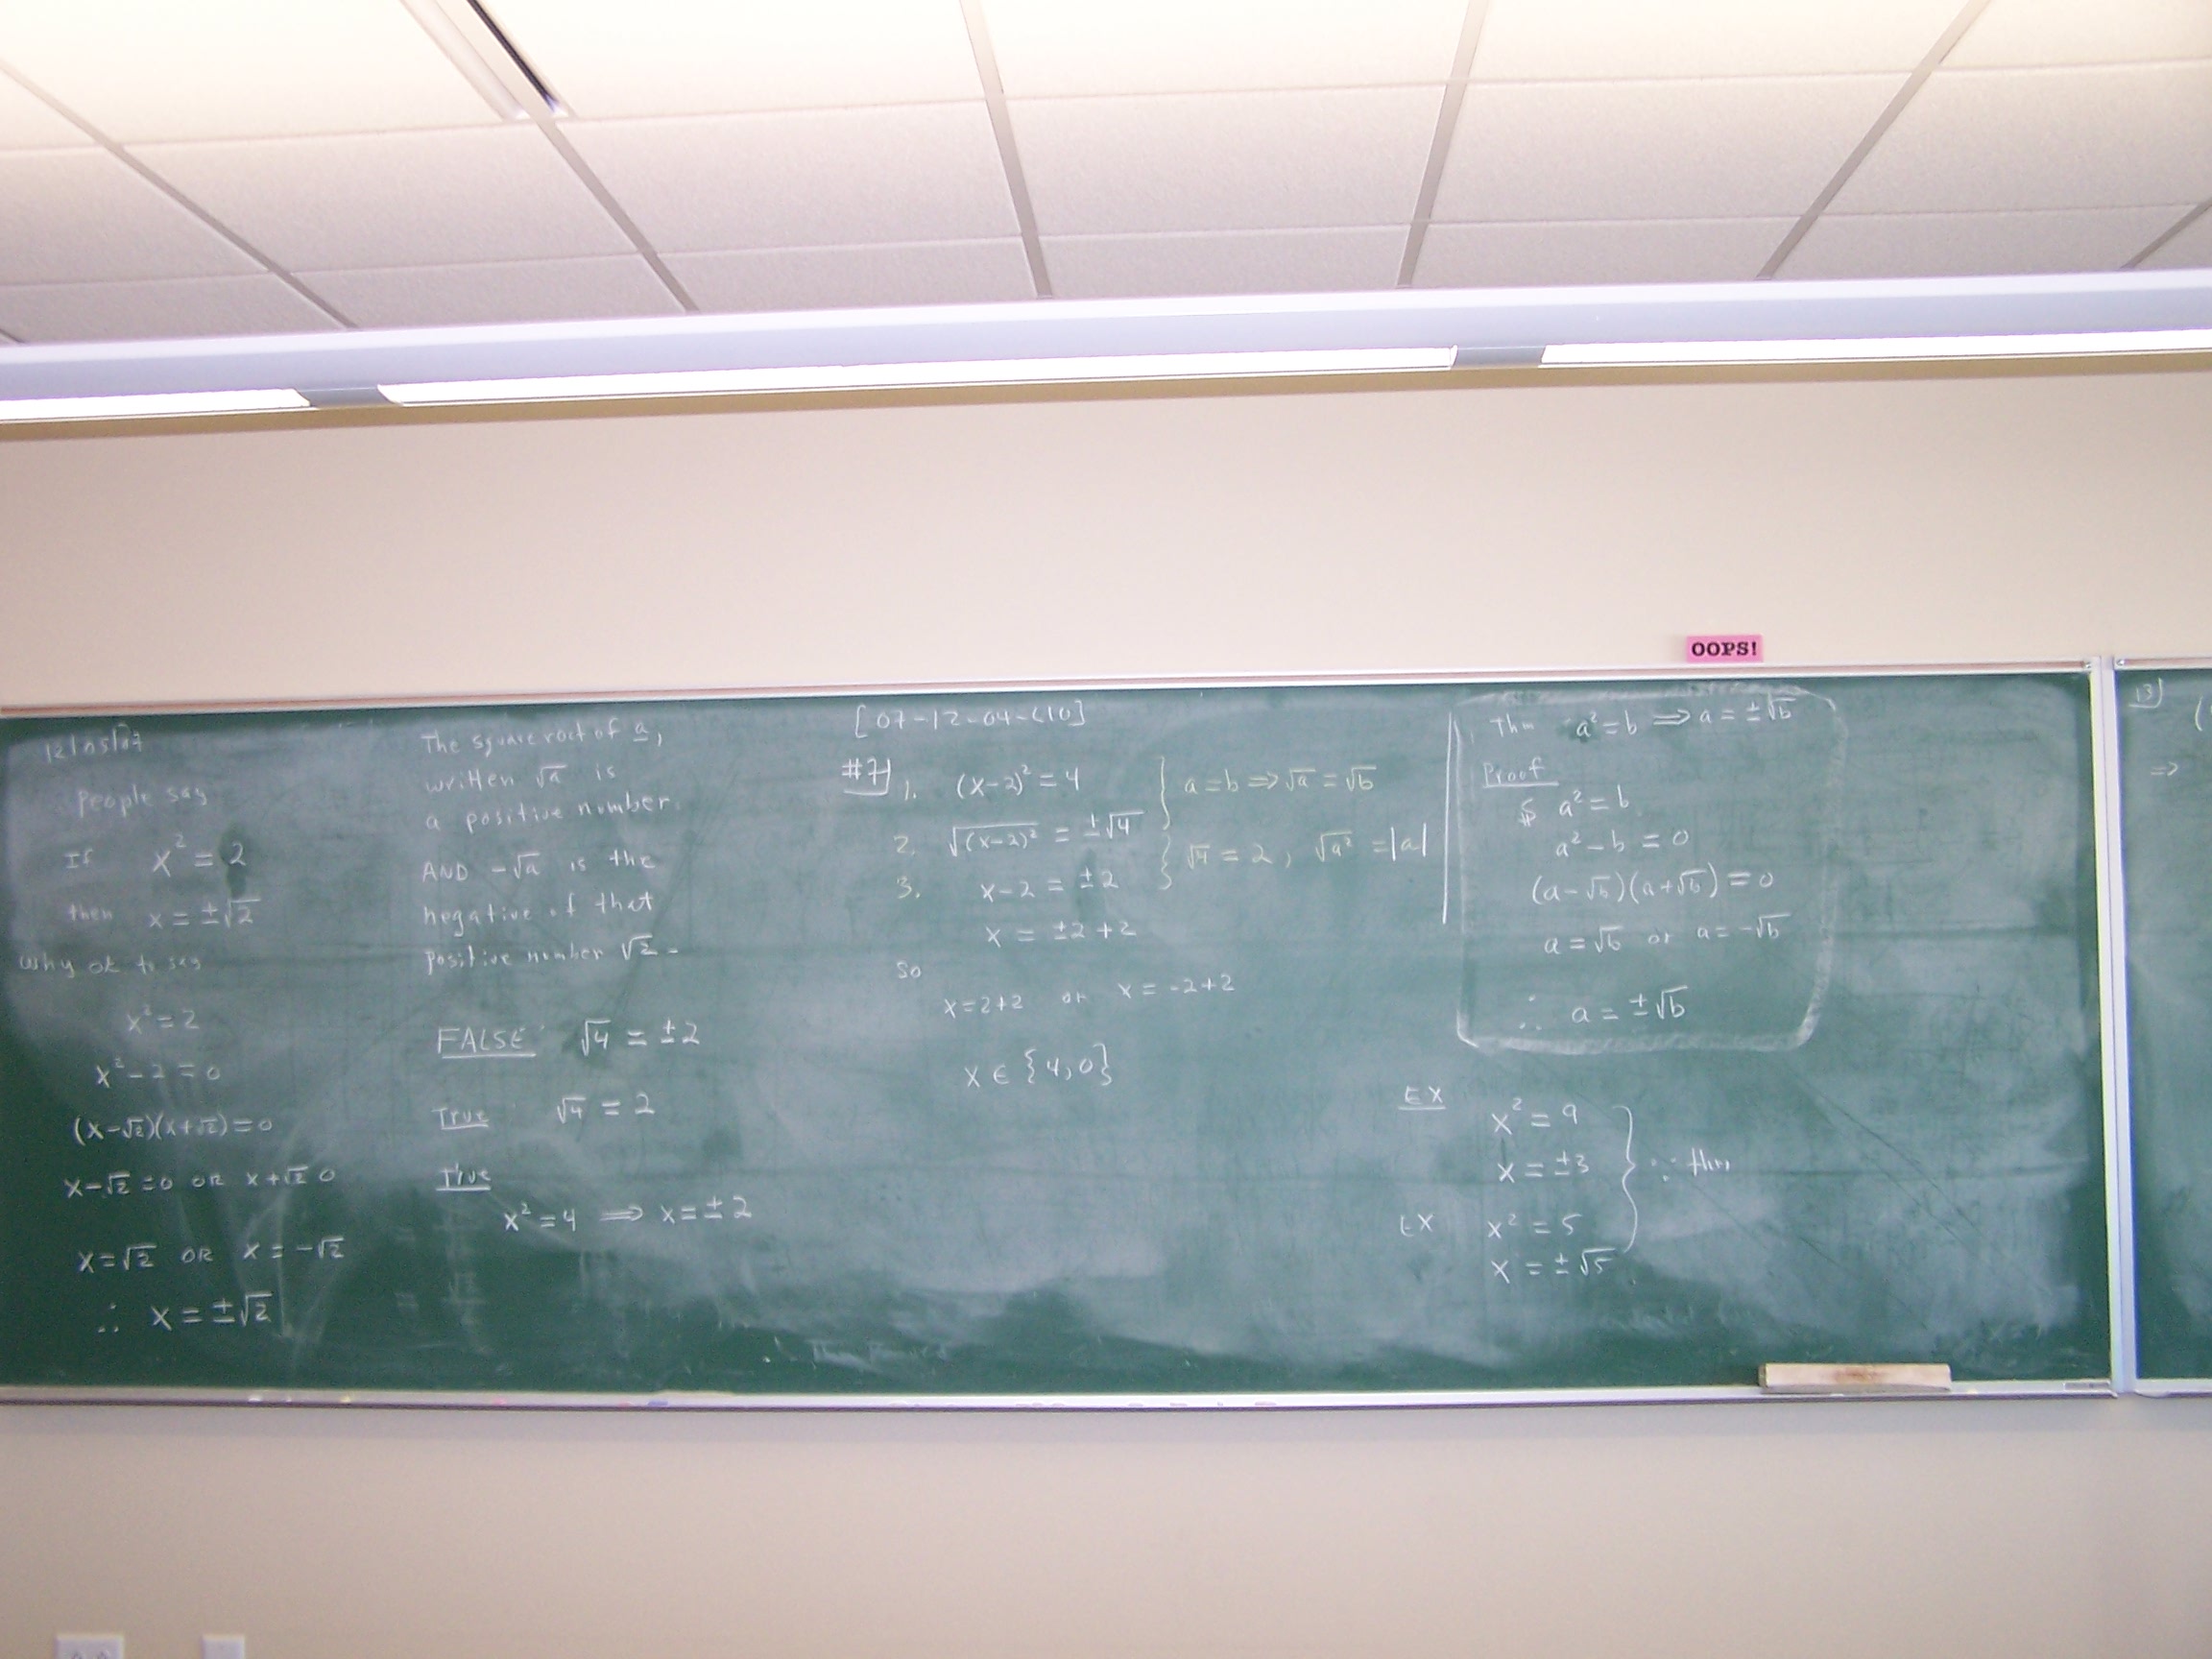 OOPS!
12/05/07
People say
If x² = 2
then x = ±√2
Why ok to say
x² = 2
x² - 2 = 0
(x-√2)(x+√2) = 0
x-√2 = 0 OR x+√2 0
x = √2 OR x = -√2
∴ x = ±√2
The square root of a,
written √a is
a positive number
AND -√a is the
negative of that
positive number √2 -
FALSE √4 = ±2
True √4 = 2
True
x² = 4 ⟹ x = ±2
[07-12-04-L10]
#7) 1. (x-2)² = 4
2. √(x-2)² = ±√4
3. x-2 = ±2
x = ±2+2
So
x = 2+2 or x = -2+2
x ∈ {4,0}
a = b ⟹ √a = √b
√4 = 2, √a² = |a|
Thm a² = b ⟹ a = ±√b
Proof
$ a² = b
a² - b = 0
(a-√b)(a+√b) = 0
a = √b or a = -√b
∴ a = ±√b
EX x² = 9
x = ±3
∵ thm
EX x² = 5
x = ±√5
13) (
⟹